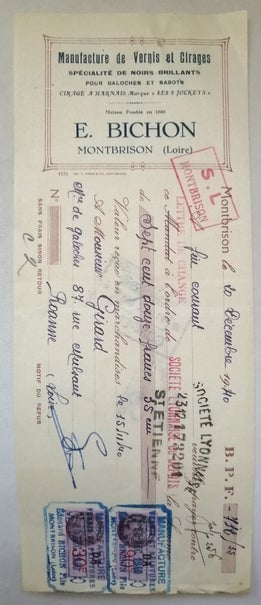 Manufacture de Vernis et Cirages
SPÉCIALITÉ DE NOIRS BRILLANTS
POUR GALOCHES ET SABOTS
CIRAGE A HARNAIS Marque "LES 3 JOCKEYS"
Maison Fondée en 1888
E. BICHON
MONTBRISON (Loire)
Montbrison le 20 Décembre 1940 B.P.F. 712/35
S. L.
MONTBRISON
fin courant
LETTRE DE CHANGE
ce Mandat à l'ordre de SOCIÉTÉ LYONNAISE
la
de Sept cent douze francs 35 cm
Valeur reçue en marchandises le 15/11/40
SOCIÉTÉ LYONNAISE
2312173201
ST ETIENNE
A Monsieur Girard
Mre de galoches 87 rue Mulsant
Roanne (Loire)
N°
SANS FRAIS SINON RETOUR
MOTIF DU REFUS
MANUFACTURE
Edouard BICHON Fils
MONTBRISON (Loire)
MANUFACTURE
Edouard BICHON Fils
MONTBRISON (Loire)